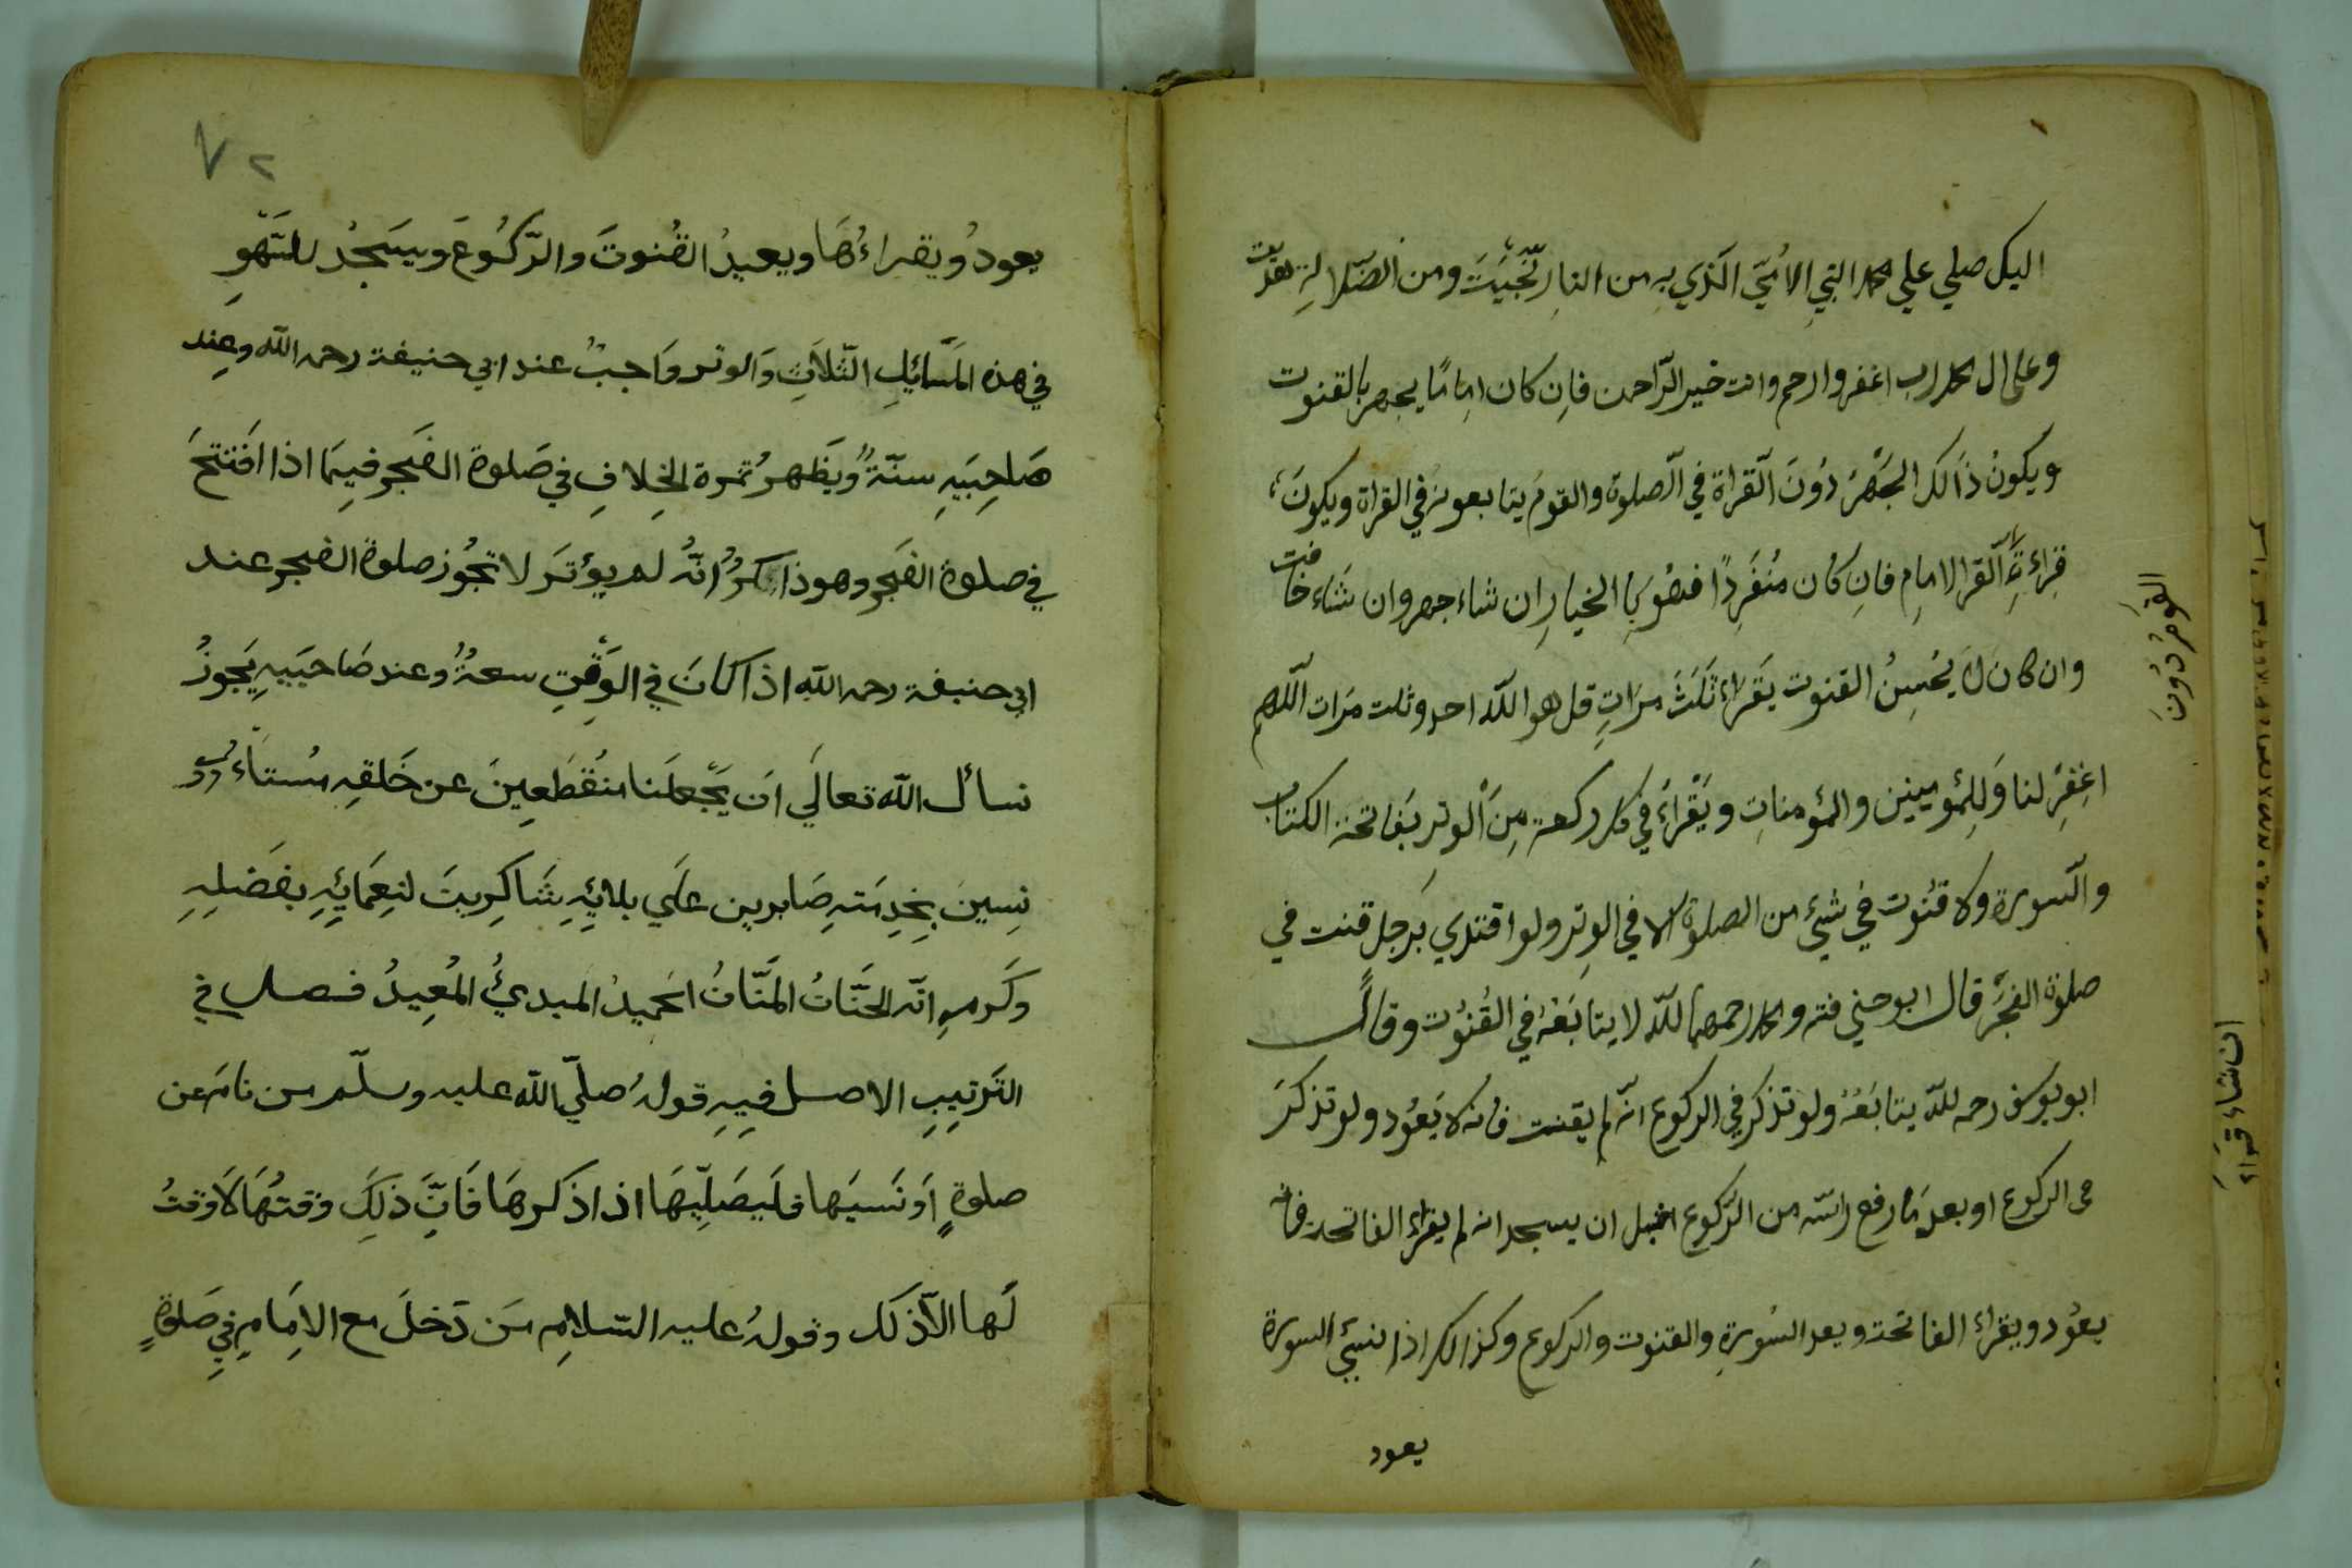 اليك صلي علي محمد النبي الاُمّيّ الّذي بهِ من النارِ نجّيتَ ومن الضّلالةِ هديت
وعلي ال محمد رب اغفر وارحم وانت خير الرّاحمن فاِن كان اِمامًا يجهر بالقنوت
ويكونُ ذالك الجَهْرُ دُونَ الّقراة في الّصلوة والقومُ يتابعونه في القراة ويكون
قِراءَةِ الامامِ فانِ كان مُنْفَرِدًا فهُوَ بِالخيارِ ان شاء جهر وان شَاء خافت
القَومُ دُونَ
وان كان لَا يُحْسِنُ القنوت يقَراء ثَلَثَ مرَاتٍ قل هو اللّه احد وثلث مرَات اللّهم
اغفِرْ لنا وَلِلمُؤمنين والمؤمناتِ ويَقْراءُ في كل ركعة مِنَ الْوترِ بفَاتحة الكتاب
والّسورة ولا قنُوت في شيئ من الصلوة الا في الوِتر ولو اقتدي بَرجل قنت في
صلوة الفَجْرَ قال ابو حني فته ومحمد رحمهما للّه لا يتابَعْهُ في القُنُوت وقال
ابو يوسف رحمه للّه يتابَعُهُ ولو تذكر في الركوع انّه لم يقنت فانه لا يَعُود ولو تذكرَ
ان شاء قراء
في الركوع او بعد مَا رفع راسّه من الرّكوع قبل ان يسجد انه لم يقراء الفاتحة فانه
يعوُد ويقراء الفاتحة ويعد السُورةِ والقنوت والركوع وكذالك اذا نسيَ السورة
يعود
٧٢
يعودُ ويقراءُهَا ويعيدُ القُنوتَ والرّكُوعَ ويسَجُد للسّهَوِ
في هذه المَسَائِلِ الثّلاثِ وَالوتر وَاجبٌ عند ابي حنيفة رحمه اللّه وعِند
صَاحِبَيهِ سنّةٌ ويظَهرُ ثمرة الخِلافِ في صَلوة الفَجر فيمَا اذا افَتتحَ
في صلوة الفَجر وهو ذاكِرٌ اَنّهُ لم يؤترَ لا تجُوز صلوة الفجر عند
ابي حنيفة رحمه اللّه اذا كانَ في الوَقْتِ سعةٌ وعند صَاحبَيهِ يَجوزُ
نسأل اللّه تعالَي اَن يَجْعلَنا منُقطَعِينَ عن خَلقهِ مُستاء
نِسِينَ بخِدِمَتهِ صَابرين علَي بلائِهِ شَاكِرينَ لنِعمَائِهِ بفَضَلِهِ
وكَرمهِ انّه الحَنَّانُ المَنَّانُ الحَميدُ المبديُ المُعيدُ فصل في
التَرتيبِ الاصل فيِهِ قولهُ صلّي اللّه عليه وسلّم من نامَ عن
صلوةٍ اَو نَسيَها فلَيصَلِّيهَا اذا ذكرهَا فَانَّ ذلِكَ وقتُهَا لَا وقتُ
لَها الّا ذلك وقولهُ عليه السّلامِ مَن دَخلَ مع الاِمَامِ فِي صَلوةٍ